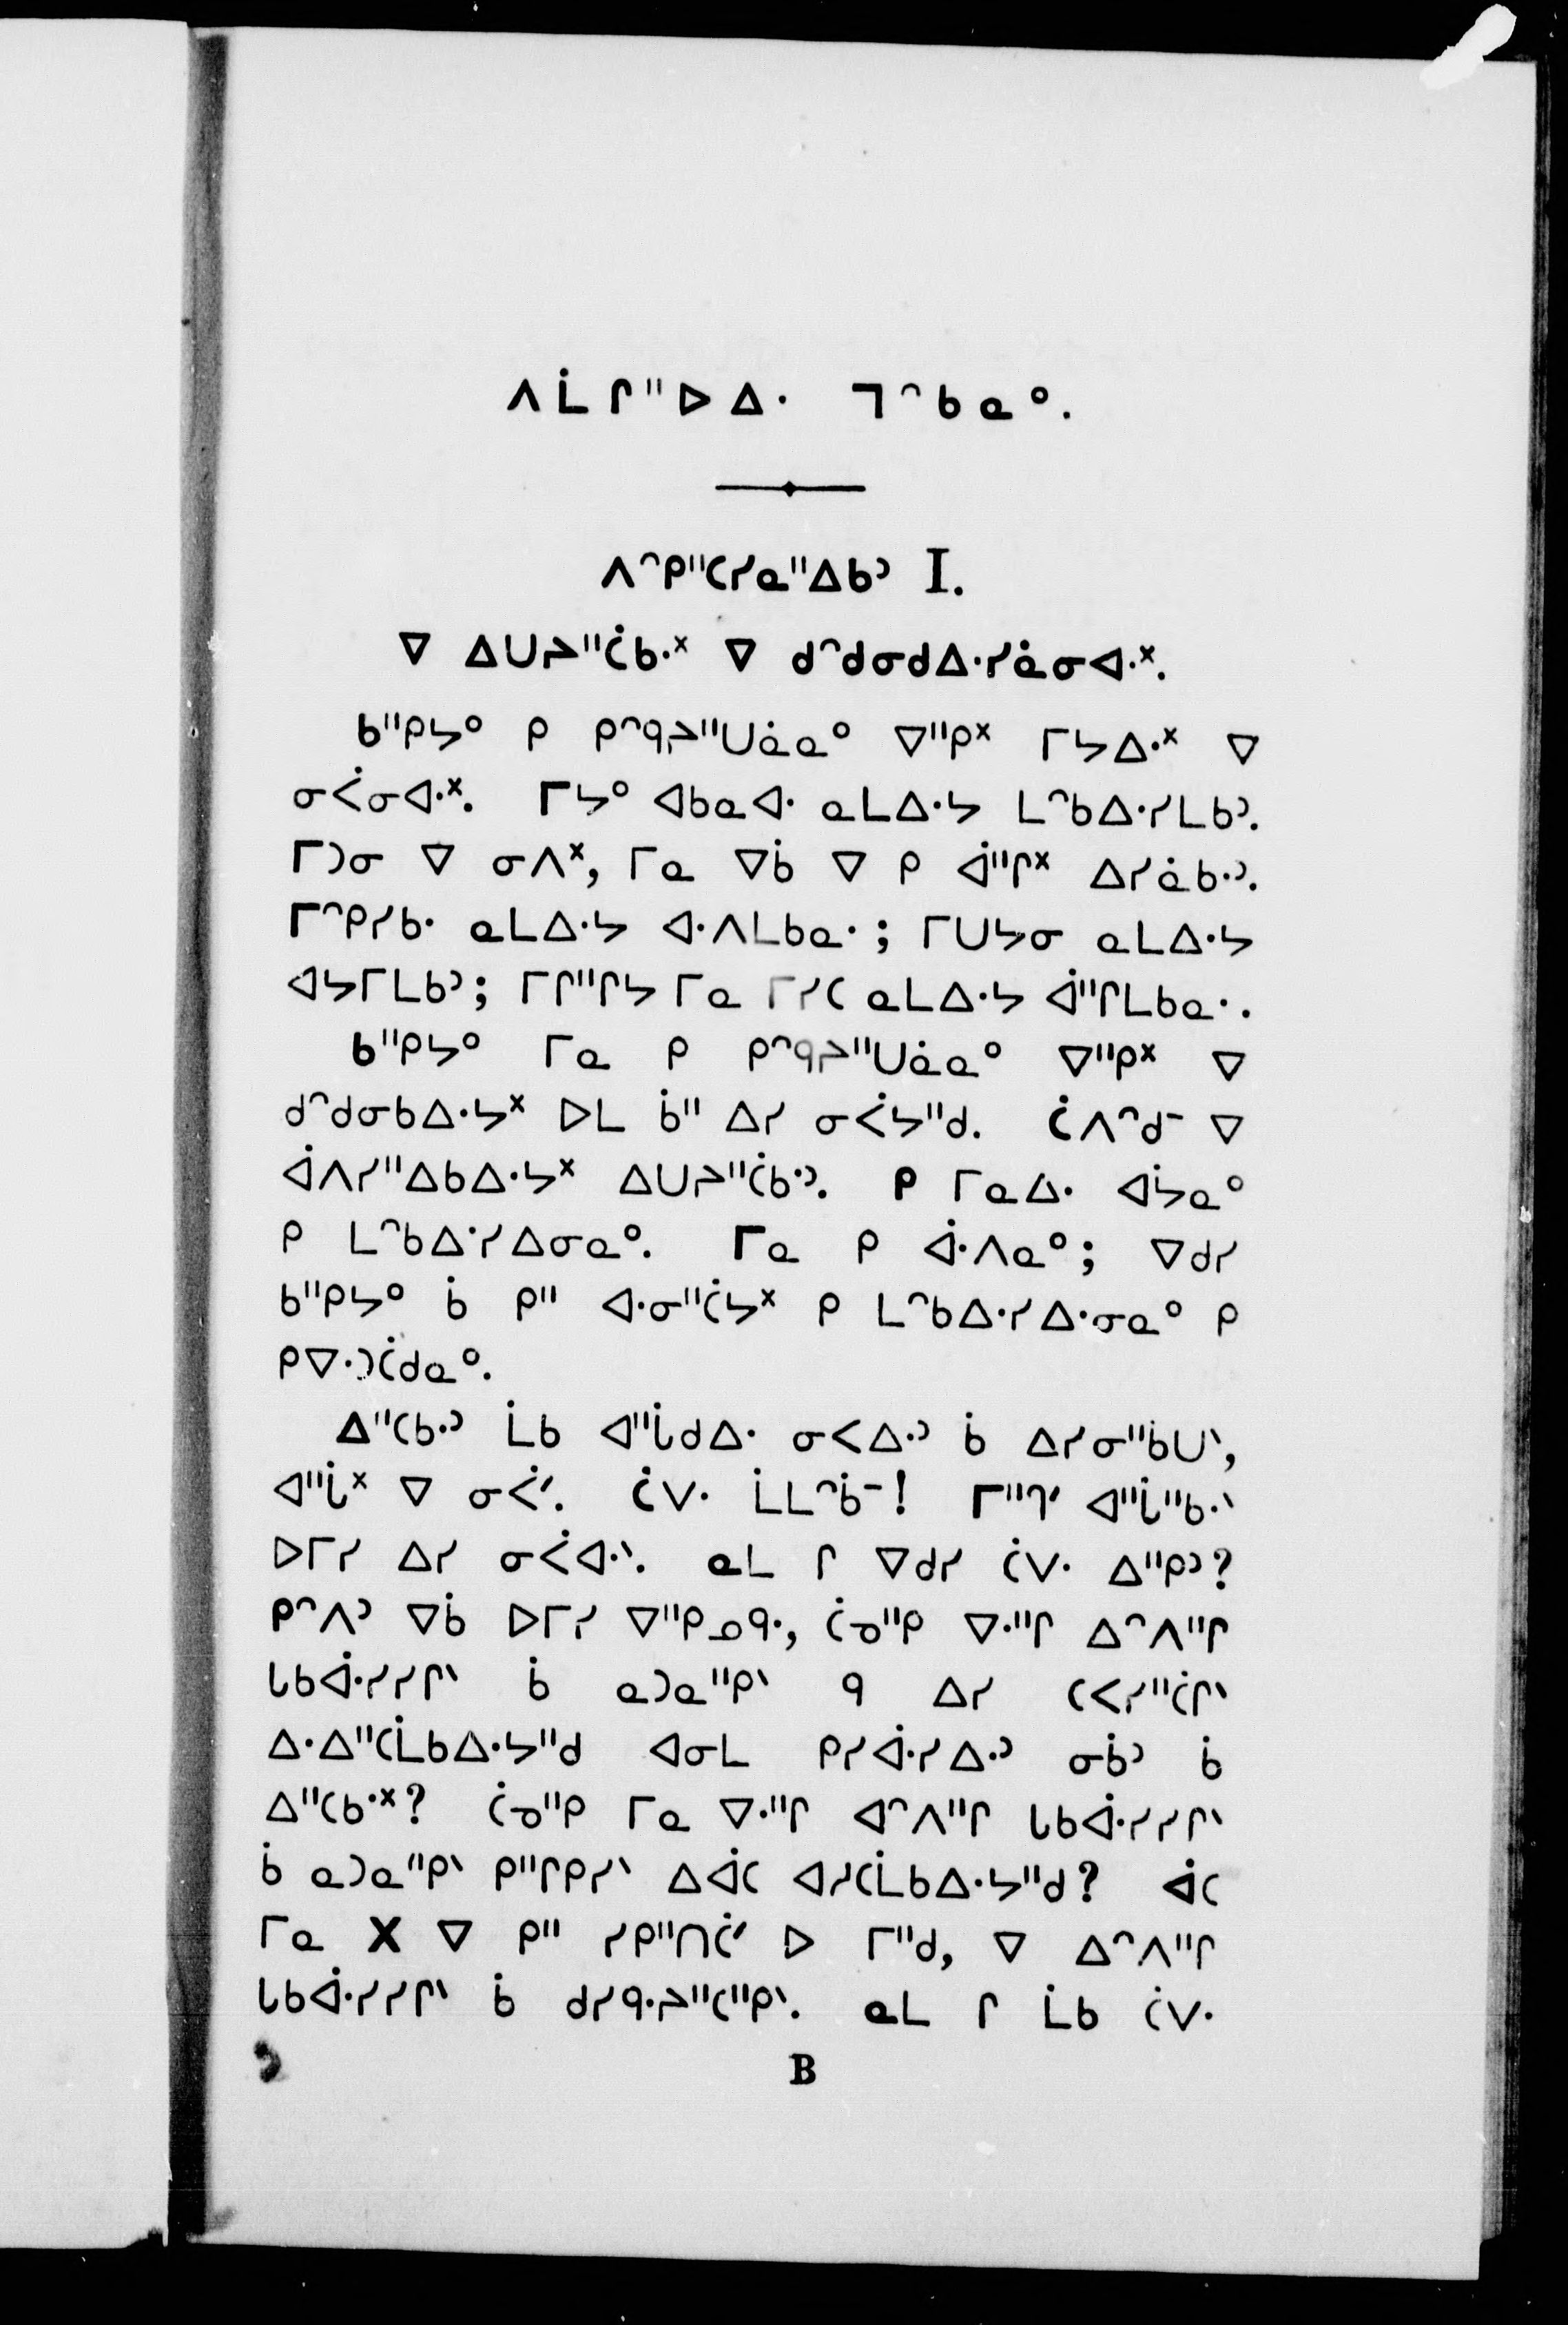 ᐱᒫᒋᐦᐅᐃᐧ ᒣᐢᑲᓇᐤ.
ᐱᐢᑭᐦᑕᓯᓇᐦᐃᑲᐣ I.
ᐁ ᐃᑌᔨᐦᑖᑲᐧᕽ ᐁ ᑯᐢᑯᓂᑯᐃᐧᓯᓈᓂᐊᐧᕽ.
ᑲᐦᑭᔭᐤ ᑭ ᑭᐢᑫᔨᐦᑌᓈᓇᐤ ᐁᐦᑭᕽ ᒥᔭᐃᐧᕽ ᐁ
ᓂᐹᓂᐊᐧᕽ. ᒥᔭᐤ ᐊᑲᓇᐊᐧ ᓇᒪᐃᐧᔭ ᒪᐢᑲᐃᐧᓯᒪᑲᐣ.
ᒥᑐᓂ ᐁ ᓂᐱᕽ, ᒥᓇ ᐁᑳ ᐁ ᑭ ᐋᐦᒋᕽ ᐃᓯᓈᑲᐧᐣ.
ᒥᐢᑭᓯᑲᐧ ᓇᒪᐃᐧᔭ ᐊᐧᐱᒪᑲᓇᐧ; ᒥᑌᔭᓂ ᓇᒪᐃᐧᔭ
ᐊᔭᒥᒪᑲᐣ; ᒥᒋᐦᒋᔭ ᒥᓇ ᒥᓯᑕ ᓇᒪᐃᐧᔭ ᐋᐦᒋᒪᑲᓇᐧ.
ᑲᐦᑭᔭᐤ ᒥᓇ ᑭ ᑭᐢᑫᔨᐦᑌᓈᓇᐤ ᐁᐦᑭᕽ ᐁ
ᑯᐢᑯᓂᑲᐃᐧᔭᕽ ᐅᒪ ᑳᐦ ᐃᓯ ᓂᐹᔭᐦᑯ. ᑖᐱᐢᑯᐨ ᐁ
ᐋᐱᓯᐦᐃᑲᐃᐧᔭᕽ ᐃᑌᔨᐦᑖᑲᐧᐣ. ᑭ ᒥᓇᐃᐧ ᐊᔮᓇᐤ
ᑭ ᒪᐢᑲᐃᐧᓯᐃᓂᓇᐤ. ᒥᓇ ᑭ ᐋᐧᐱᓇᐤ; ᐁᑯᓯ
ᑲᐦᑭᔭᐤ ᑳ ᑭᐦ ᐊᐧᓂᐦᑖᔭᕽ ᑭ ᒪᐢᑲᐃᐧᓯᐃᐧᓂᓇᐤ ᑭ
ᑭᐁᐧᑐᑖᑯᓇᐤ.
ᐃᐦᑕᑲᐧᐣ ᒫᑲ ᐊᐦᒑᑯᐃᐧ ᓂᐸᐃᐧᐣ ᑳ ᐃᓯᓂᐦᑳᑌᐠ,
ᐊᐦᒑᕽ ᐁ ᓂᐹᐟ. ᑖᐯᐧ ᒫᒪᐢᑳᐨ! ᒥᐦᒉᐟ ᐊᐦᒑᐦᑲᐧᐠ
ᐅᒥᓯ ᐃᓯ ᓂᐹᐊᐧᐠ. ᓇᒪ ᒋ ᐁᑯᓯ ᑖᐯᐧ ᐃᐦᑭᐣ?
ᑭᐢᐱᐣ ᐁᑳ ᐅᒥᓯ ᐁᐦᑭᓄᑫᐧ, ᑖᓀᐦᑭ ᐁᐧᐦᒋ ᐃᐢᐱᐦᒋ
ᓴᑲᐋᐧᓯᓯᒋᐠ ᑳ ᓇᑐᓇᐦᑭᐠ ᑫ ᐃᓯ ᑕᐸᓯᐦᑖᒋᐠ
ᐃᐧᐃᐦᑕᒫᑲᐃᐧᔭᐦᑯ ᐊᓂᒪ ᑭᓯᐋᐧᓯᐃᐧᐣ ᓂᑳᐣ ᑳ
ᐃᐦᑕᑲᐧᕽ? ᑖᓀᐦᑭ ᒥᓇ ᐁᐧᐦᒋ ᐊᐢᐱᐦᒋ ᓴᑲᐋᐧᓯᓯᒋᐠ
ᑳ ᓇᑐᓇᐦᑭᐠ ᑭᐦᒋᑭᓯᐠ ᐃᐋᐧᑕ ᐊᓯᑕᒫᑲᐃᐧᔭᐦᑯ? ᐋᑕ
ᒥᓇ X ᐁ ᑭᐦ ᓯᑭᐦᑎᑖᐟ ᐅ ᒥᐦᑯ, ᐁ ᐃᐢᐱᐦᒋ
ᓴᑲᐋᐧᓯᓯᒋᐠ ᑳ ᑯᓯᑫᐧᔨᐦᑕᐦᑭᐠ. ᓇᒪ ᒋ ᒫᑲ ᑖᐯᐧ
B